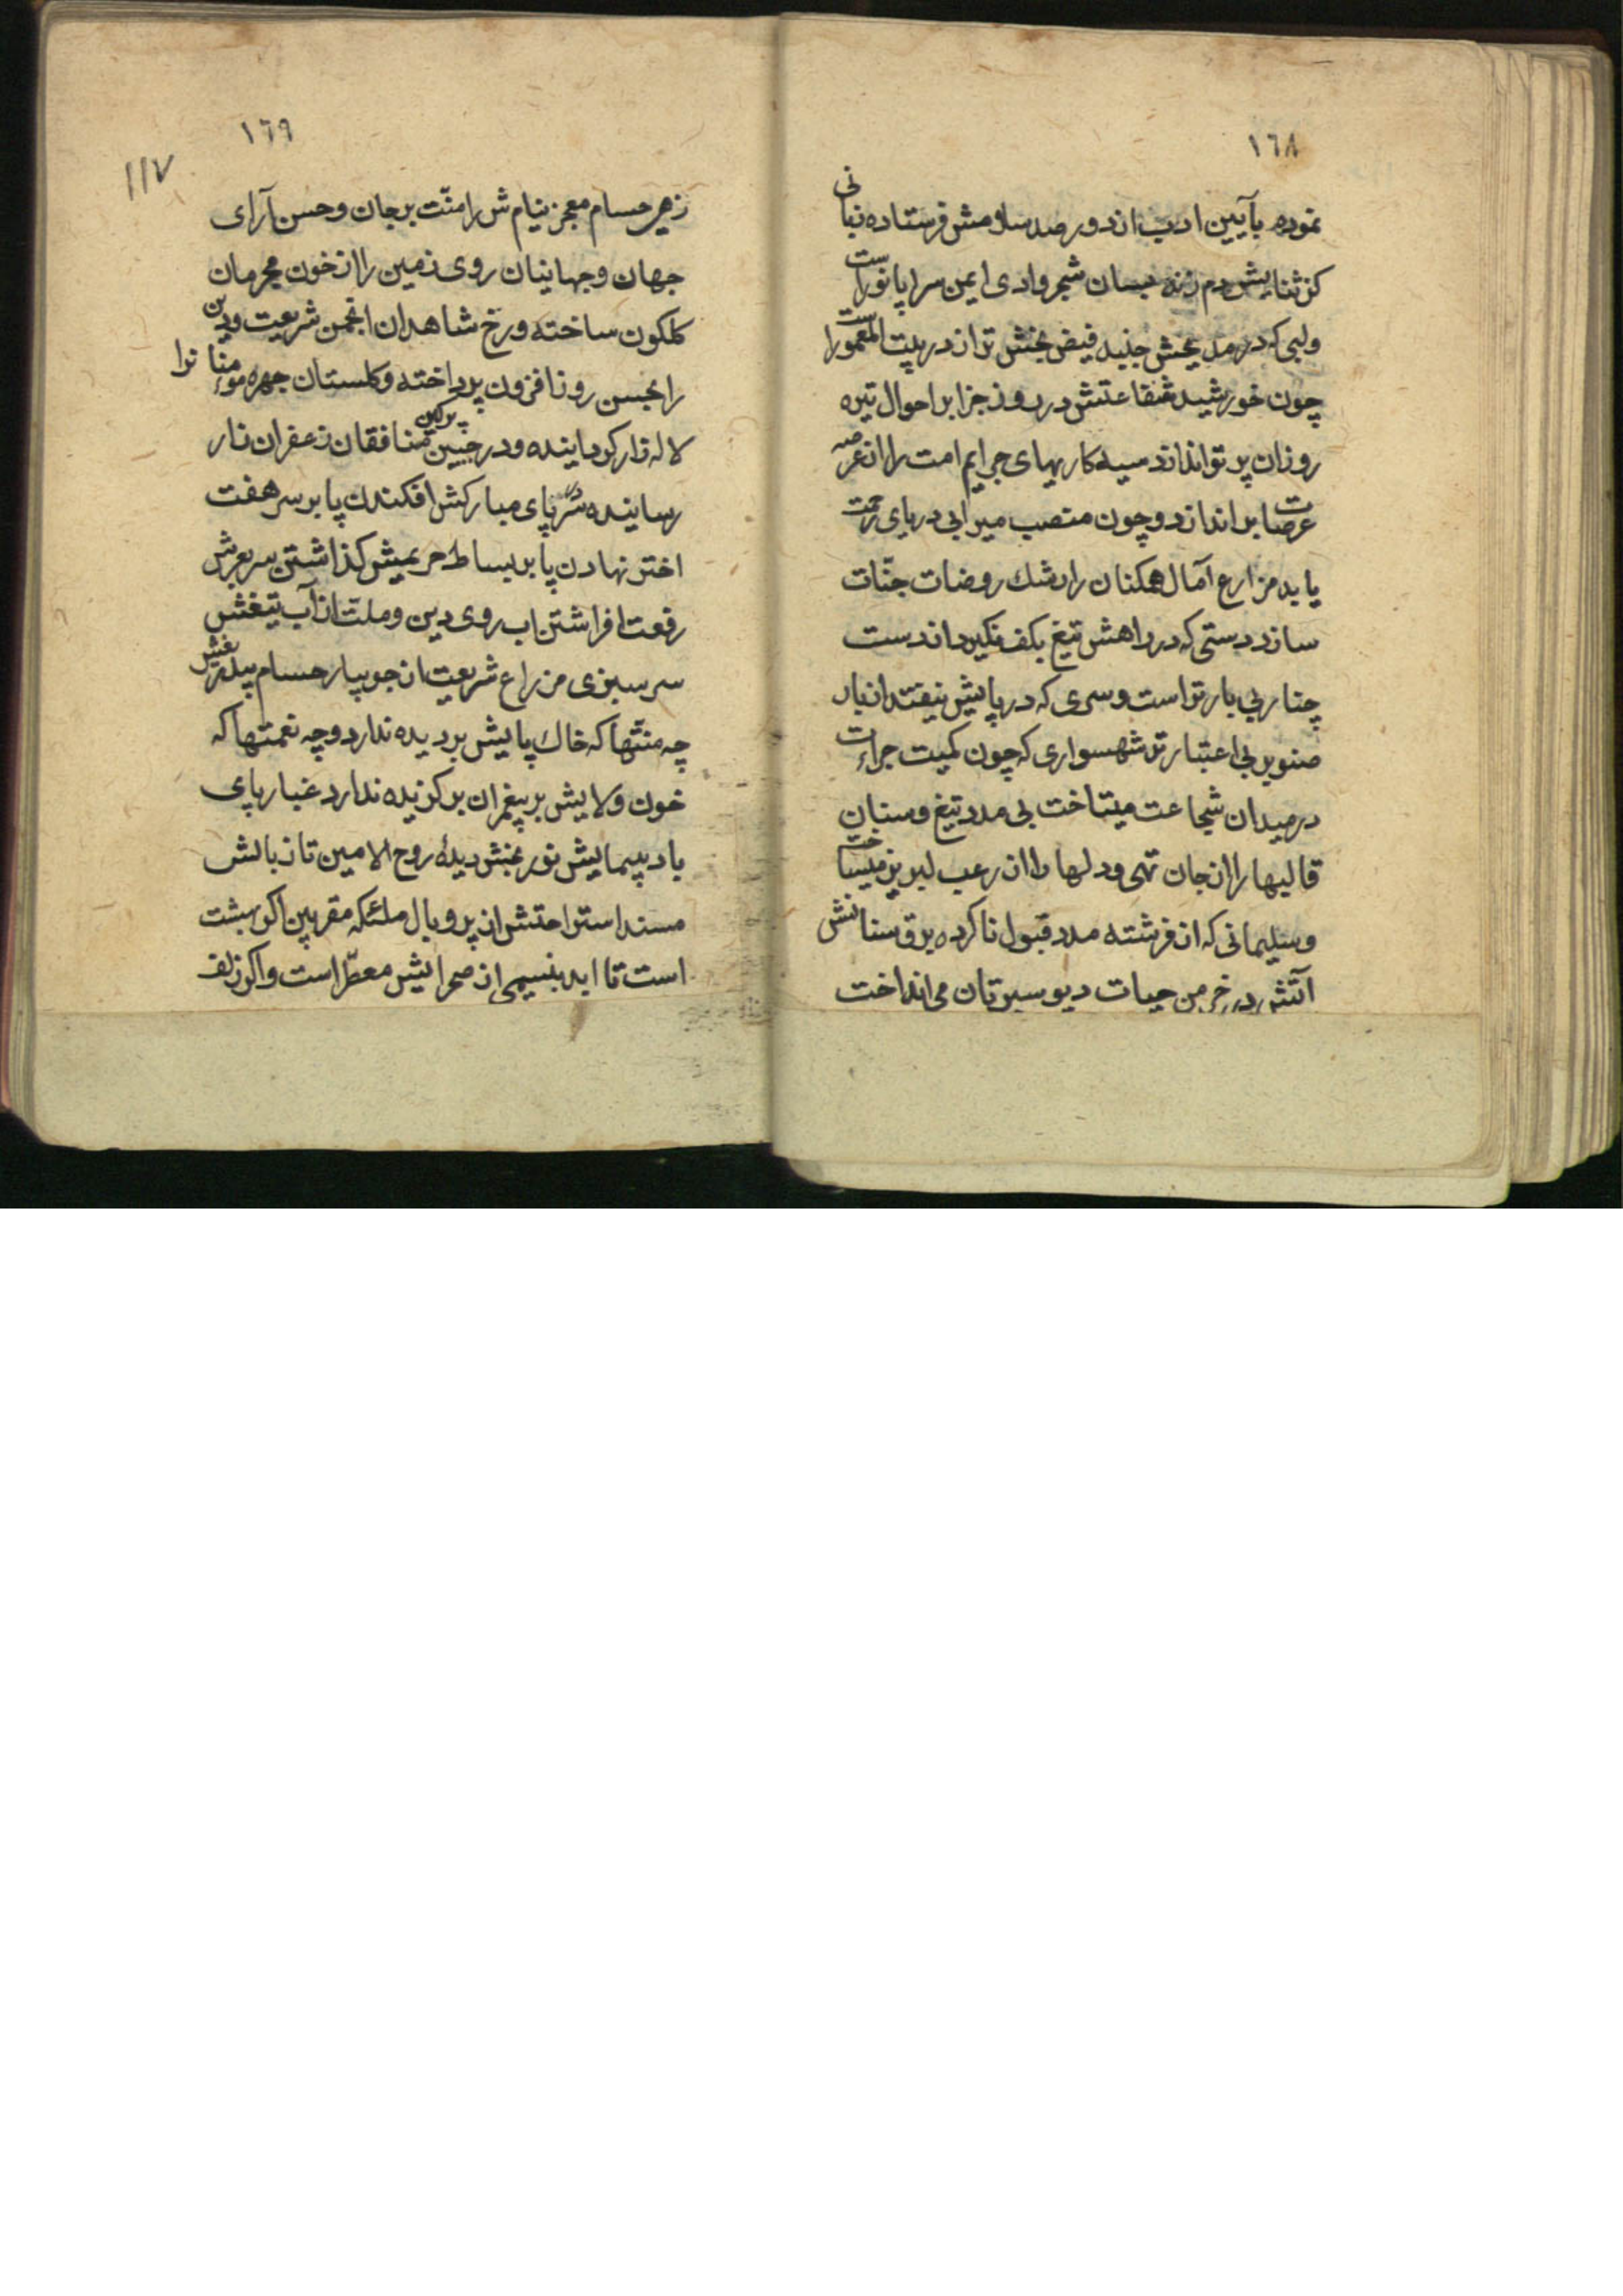 ١٦٨
نموده بآیین ادب از دور صد سلامش فرستاده زبانی
کز ثنایش دم زند بسان شجر وادی ایمن سراپا نوراست
ولبی که در مدیحش جنبد فیض بخش تر از در بیت المعموراست
چون خورشید شفاعتش در روز جزا بر احوال تیره
روزان پرتو اندازد سیه کاریهای جرایم امت را از عرصه
عرصات براندازد و چون منصب میرابی دریای رحمت
یابد مزارع آمال همکنان را رشك روضات جنّات
سازد دستی که در راهش تیغ بکف نکیرد از دست
چنار بی بارتر است و سری که در پایش نیفتد از بار
صنوبر بی اعتبارتر شهسواری که چون کمیت جراءت
در میدان شجاعت میتاخت بی مدد تیغ و سنان
قالبها را از جان تهی و دلها را از رعب لبریز میساخت
و سلیمانی که از فرشته مدد قبول ناکرده برق سنانش
آتش در خرمن حیات دیو سیرتان می انداخت
١٦٩
١١٧
زهر حسام معجز نیام ش را منّت بر جان و حسن آرای
جهان و جهانیان روی زمین را از خون مجرمان
کلکون ساخته و رخ شاهدان انجمن شریعت و دین
را بحسن روز افزون پرداخته و کلستان چهره مؤمنانرا
لاله زار کردانیده و در جبین پرکین منافقان زعفران زار
رسانیده سر در پای مبارکش افکندن پا بر سر هفت
اختر نهادن پا بر بساط حریمش کذاشتن سر بعرش
رفعت افراشتن اب روی دین و ملت از آب تیغش
سرسبزی مزراع شریعت از جویبار حسام بیدریغش
چه منتّها که خاك پایش بر دیده ندارد و چه نعمتها که
خون ولایش بر پیغمران بر کزیده ندارد غبار پای
باد پیمایش نور بخش دیدۀ روح الامین تا زبالش
مسند استراحتش از پر و بال ملئکه مقربین اکر بهشت
است تا ابد بنسیمی از صحرایش معطّر است و اکر زلف